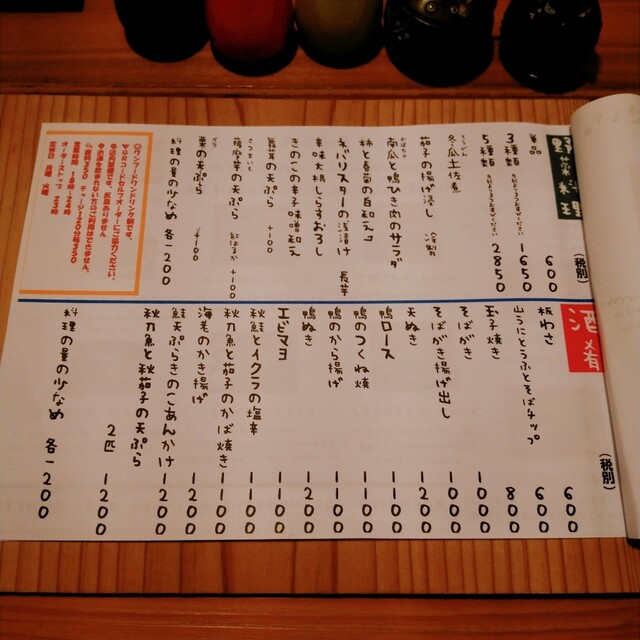 野菜料理
(税別)
単品 600
3種類 1650
5種類 2850
冬瓜土佐煮
茄子の揚げ浸し 冷製
南瓜と鴨ひき肉のサラダ
かぼちゃ
柿と春菊の白和え
ネバリスターの浅漬け 長芋
辛味大根しらすおろし
きのこの辛子味噌和え
舞茸の天ぷら +100
薩摩芋の天ぷら 紅はるか +100
さつまいも
栗の天ぷら +100
くり
料理の量の少なめ 各-200
◎ワンフードワンドリンク制です。
営業時間 18時~24時
オーダーストップ 23時
定休日 月曜 火曜
酒肴
(税別)
板わさ 600
山うにとうふとそばチップ 600
玉子焼き 800
そばがき 1000
そばがき揚げ出し 1000
天ぬき 1200
鴨ロース 1100
鴨のつくね焼 1100
鴨のから揚げ 1100
鴨ぬき 1200
エビマヨ 1100
秋鮭とイクラの塩辛 1000
秋刀魚と茄子のかば焼き 1100
海老のかき揚げ 1000
鮭天ぷらきのこあんかけ 1200
秋刀魚と秋茄子の天ぷら 1200
2匹 1200
料理の量の少なめ 各-200